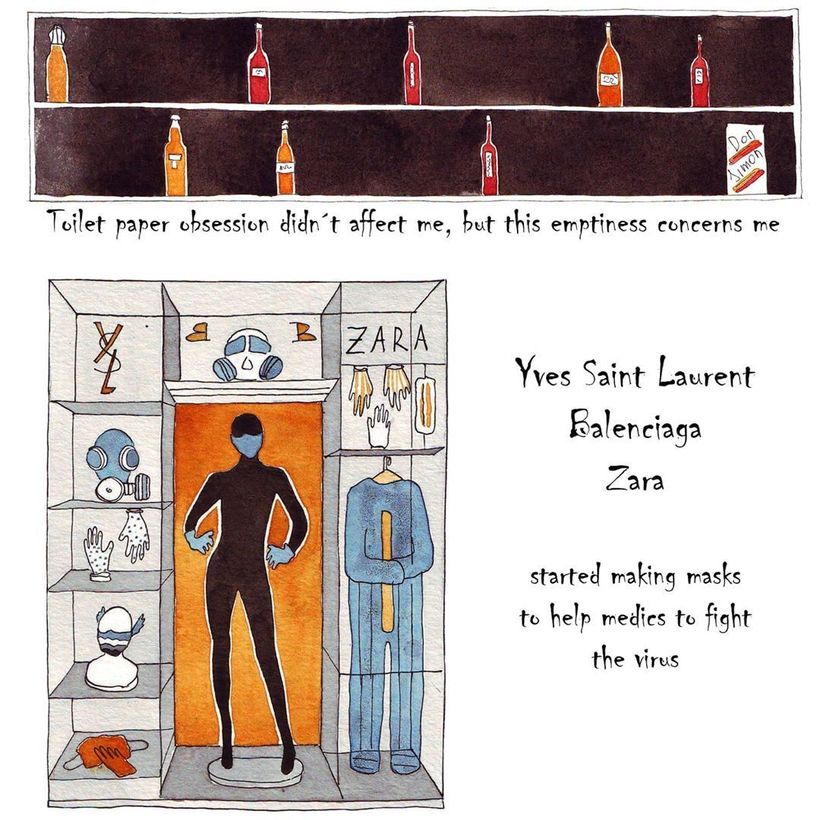 Don
Simon
Toilet paper obsession didn´t affect me, but this emptiness concerns me
YSL
B B
ZARA
Yves Saint Laurent
Balenciaga
Zara
started making masks
to help medics to fight
the virus